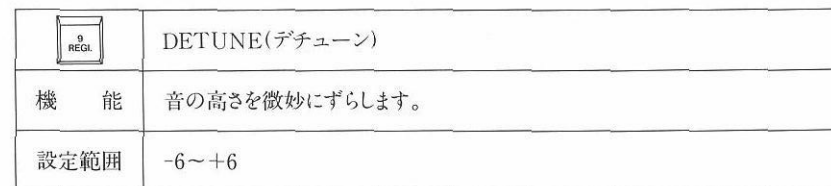 9
REGI.
DETUNE(デチューン)
機 能
音の高さを微妙にずらします。
設定範囲
-6～+6